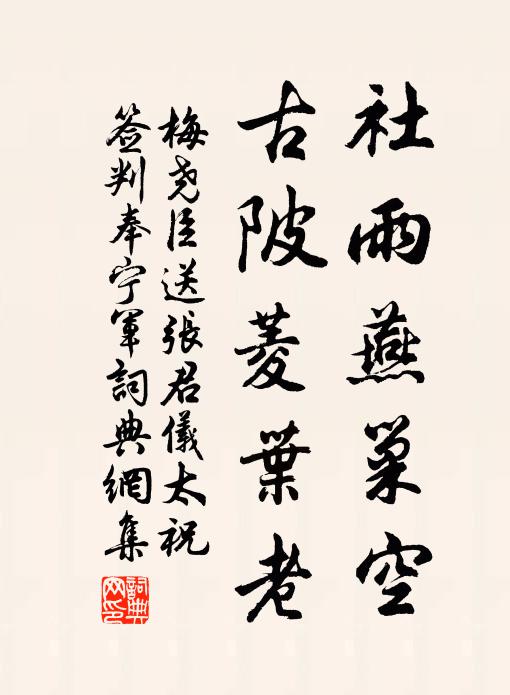 社雨燕巢空
古陂菱葉老
梅尧臣送張君儀太祝
签判奉宁軍詞典網集
詞典網印